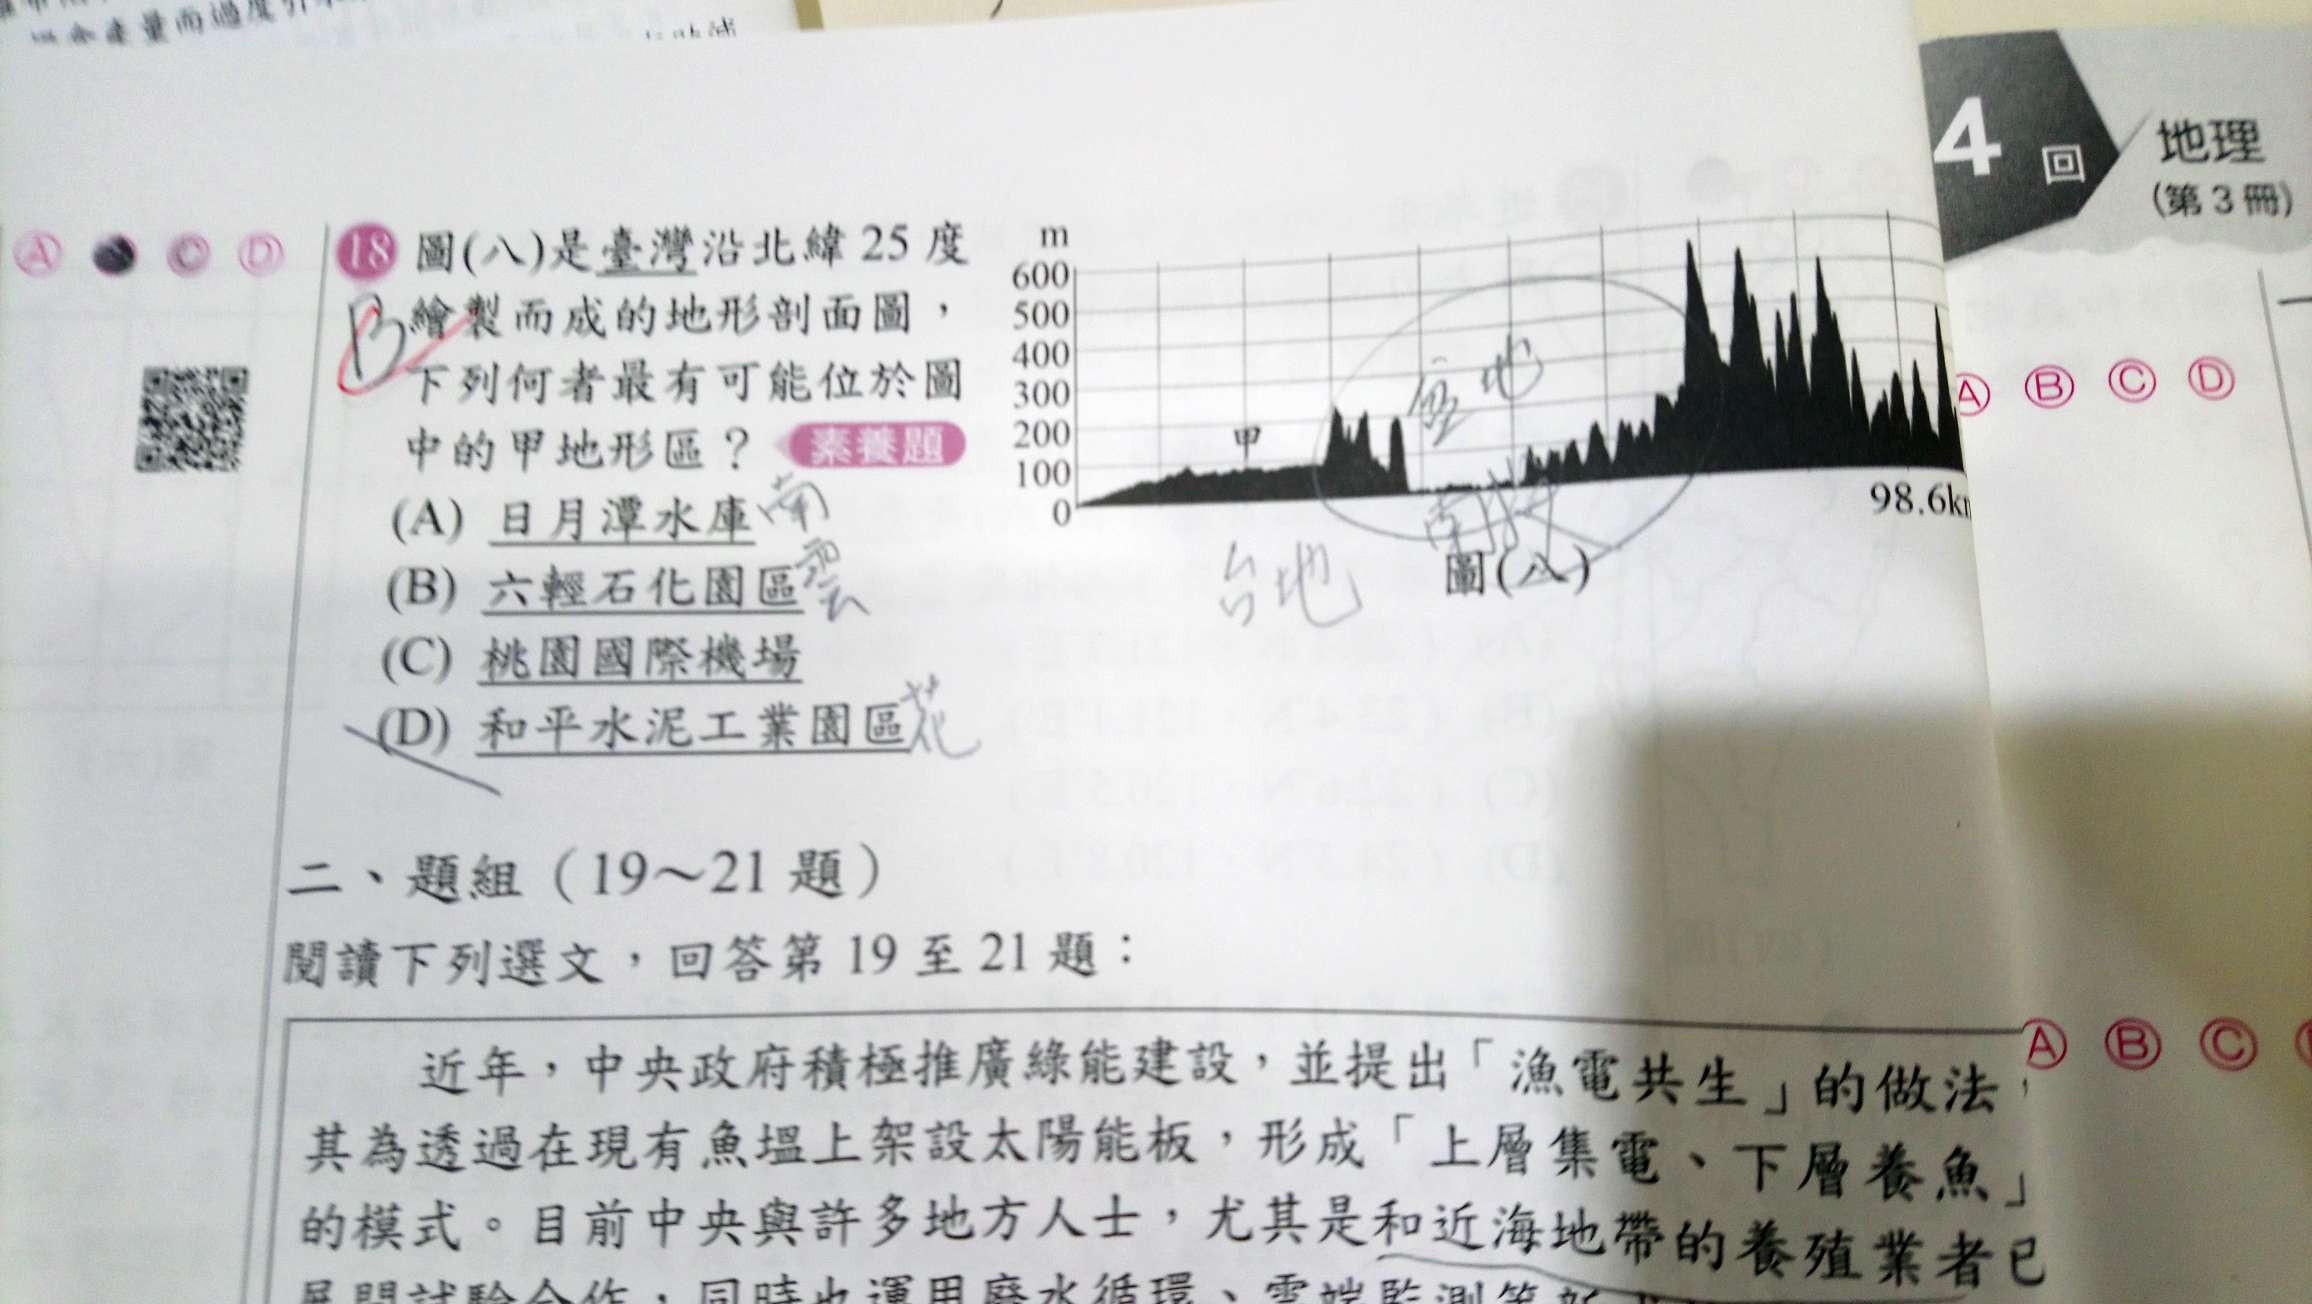 量而過度
4 回
地理
(第3冊)
Ⓐ Ⓒ Ⓓ
18 圖(八)是臺灣沿北緯 25 度
繪製而成的地形剖面圖，
下列何者最有可能位於圖
中的甲地形區？ 素養題
(A) 日月潭水庫 南
(B) 六輕石化園區 雲
(C) 桃園國際機場
(D) 和平水泥工業園區 花
B
m
600
500
400
300
200
100
0
甲
盆地
98.6k
台地
圖(八)
Ⓐ Ⓑ Ⓒ Ⓓ
二、題組（19～21 題）
閱讀下列選文，回答第 19 至 21 題：
近年，中央政府積極推廣綠能建設，並提出「漁電共生」的做法，
其為透過在現有魚塭上架設太陽能板，形成「上層集電、下層養魚」
的模式。目前中央與許多地方人士，尤其是和近海地帶的養殖業者已
展開試驗合作，同時也運用廢水循環、雲端監測等新
Ⓐ Ⓑ Ⓒ